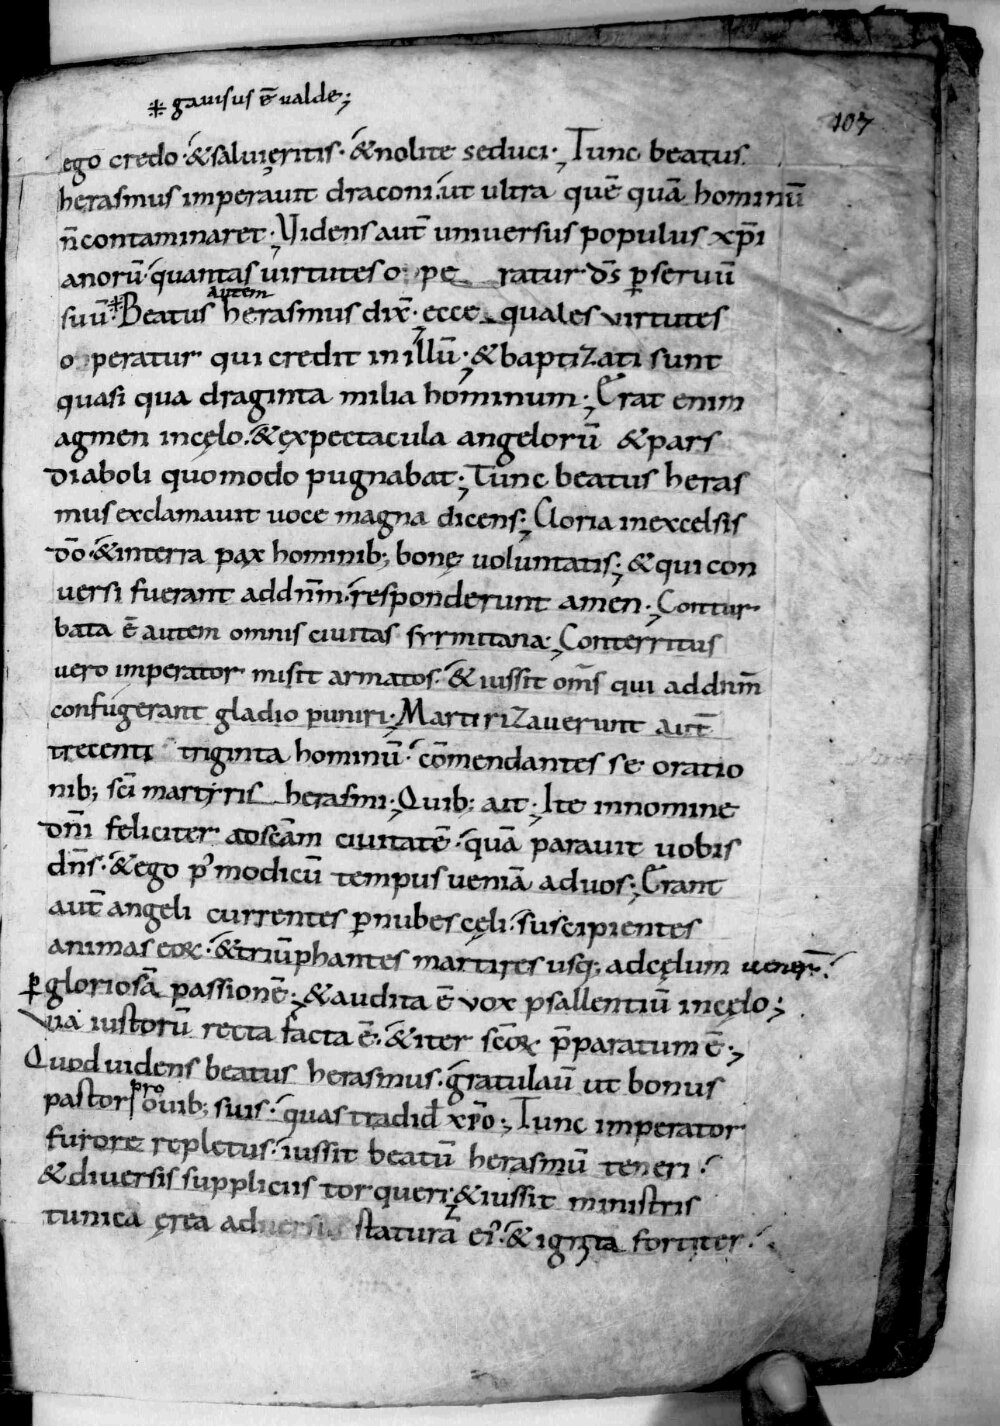 ⁜ gauisus ē ualde;
107
ego credo · & saluięritis · & nolite seduci ·, Tunc beatus
herasmus imperauit draconi · ut ultra quē quā hominū
n̄ contaminaret ·, Uidens aut̄ uniuersus populus xp̄i
anorū · quantas uirtutes o pe ratur · d̄s p̱ seruū
autem
suū ·⁜ Beatus herasmus dix̄ · ecce quales uirtutes
o peratur qui credit in illū ·, & baptizati sunt
quasi qua draginta milia hominum ·, Erat enim
agmen incęlo · & ęxpectacula angelorū & pars
diaboli quomodo pugnabat ·, Tunc beatus heras
mus exclamauit uoce magna dicens ;, Gloria inexcelsis
d̄o · & interra pax hominib; bonę uoluntatis ;, & qui con
uersi fuerant add̄n̄m · responderunt amen ·, Contur
bata ē autem omnis ciuitas syrmitana ·, Conterritus
uero imperator misit armatos · & iussit om̄s qui add̄n̄m
confugerant gladio puniri ·, Martirizauerunt aut̄
trecenti triginta hominū · cōmendantes se oratio
nib; s̄ci martyris herasmi ·, Quib; ait ·, Ite innomine
d̄n̄i feliciter ads̄cām ciuitatē · quā parauit uobis
d̄n̄s · & ego p' modicū tempus ueniā aduos ;, Erant
aut̄ angeli currentes p̱ nubes cęli · suscipientes
animas eoꝝ · & triūphantes martires usq; adcęlum uener̄ ·
p̱ gloriosā passionē ;, & audita ē vox psallentiū incęlo ;
Uia iustorū recta facta ē · & iter s̄coꝝ p̄paratum ē ·,
Quod uidens beatus herasmus · gratulaū ut bonus
pro
pastor ouib; suis · quas tradid̄ xp̄o ·, Tunc imperator
furore repletus · iussit beatū herasmū teneri ·
& diuersis suppliciis torqueri ·, & iussit ministris
tunica ęrea ad statūrā ei' · & ignita fortiter ·